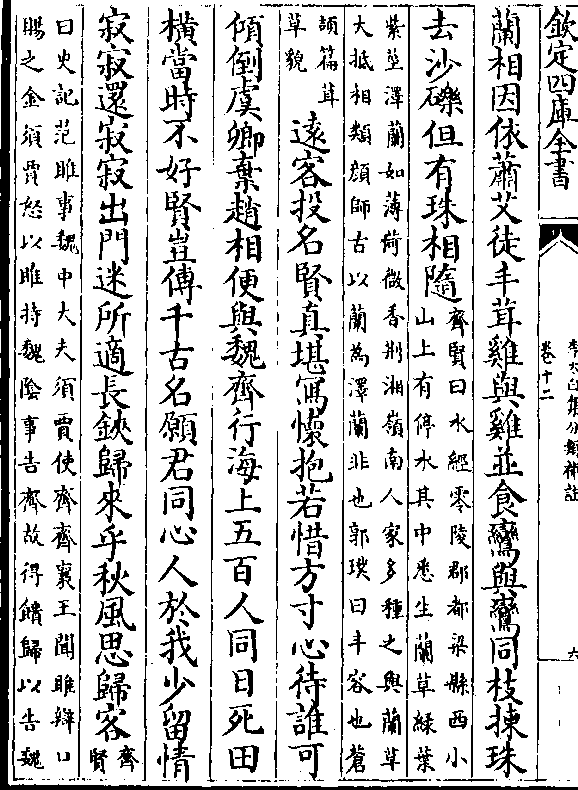 欽定四庫全書
李太白集分類補註
卷十二
六
蘭相因依蕭艾徒丰茸雞與雞並食鸞與鸞同枝揀珠
去沙礫但有珠相隨
齊賢曰水經零陵郡都梁縣西小
山上有停水其中悉生蘭草緑葉
紫莖澤蘭如薄荷微香荆湘嶺南人家多種之與蘭草
大抵相類顔師古以蘭為澤蘭非也郭璞曰丰容也蒼
頡篇茸
草貌
遠客投名賢真堪寫懷抱若惜方寸心待誰可
傾倒虞卿棄趙相便與魏齊行海上五百人同日死田
横當時不好賢豈傳千古名願君同心人於我少留情
寂寂還寂寂出門迷所適長鋏歸來乎秋風思歸客
齊
賢
曰史記范睢事魏中大夫須賈使齊齊襄王聞睢辯口
賜之金須賈怒以睢持魏隂事告齊故得饋歸以告魏